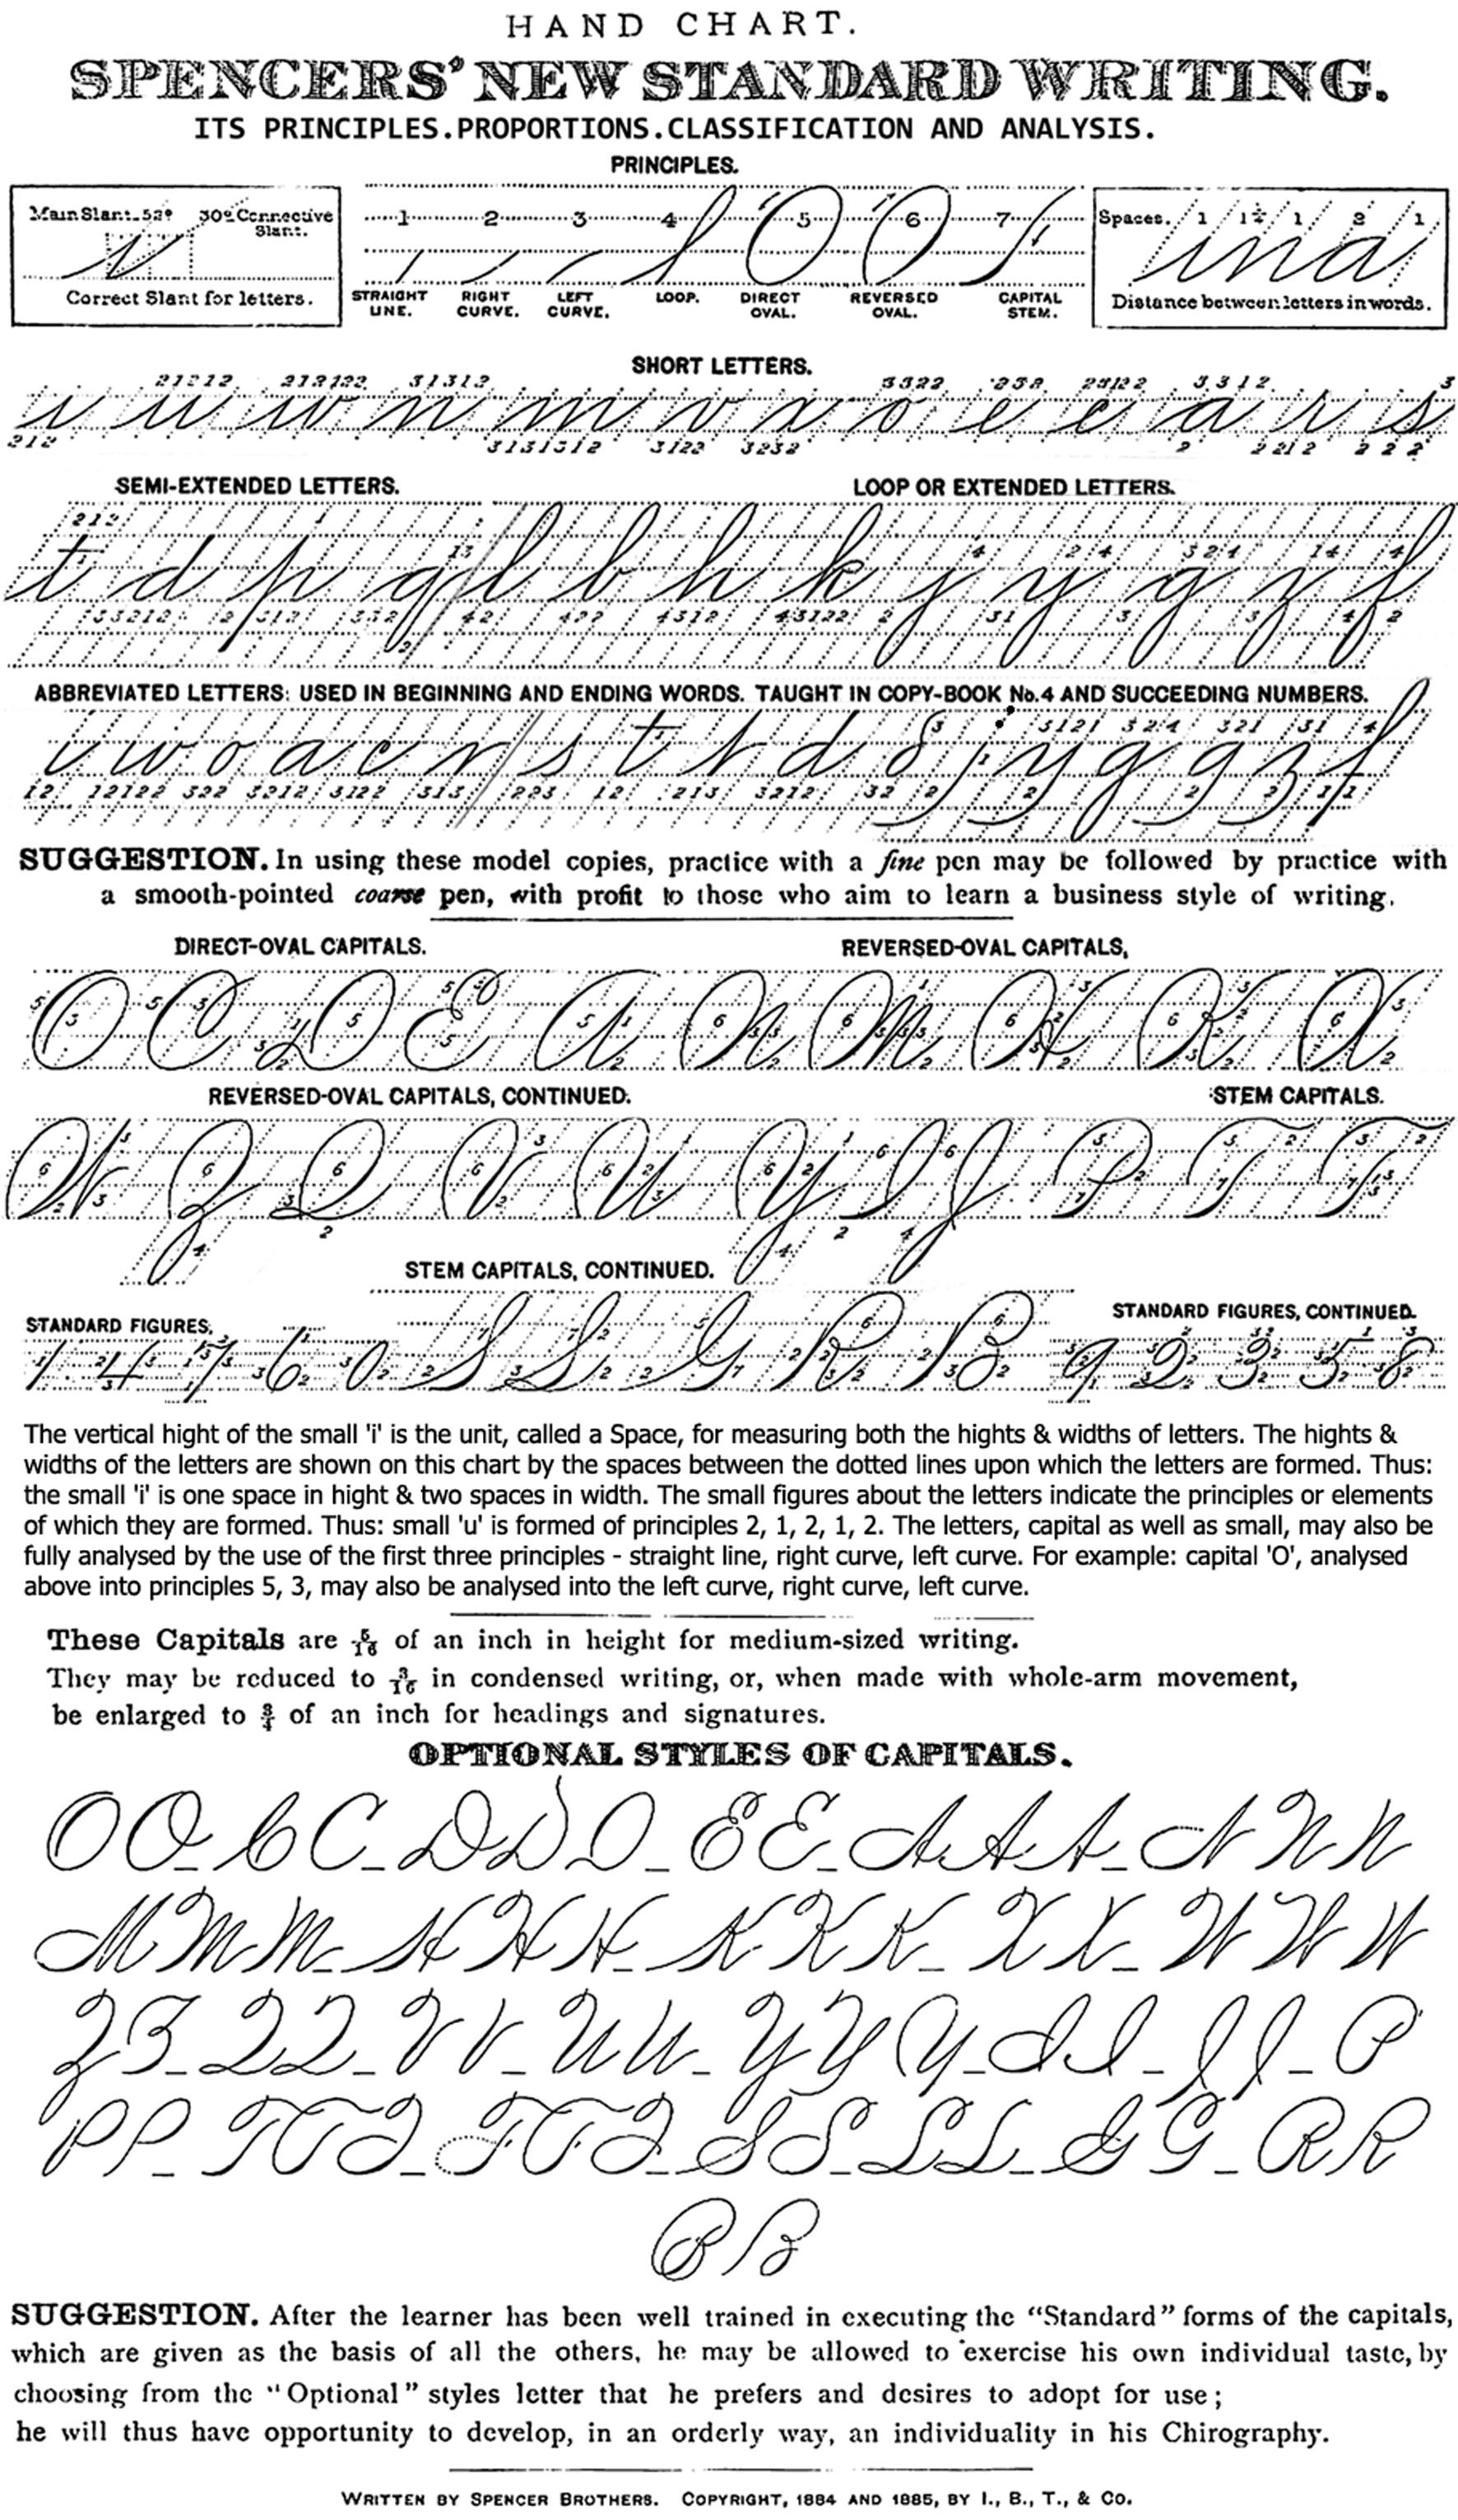 HAND CHART.
SPENCERS' NEW STANDARD WRITING.
ITS PRINCIPLES.PROPORTIONS.CLASSIFICATION AND ANALYSIS.
PRINCIPLES.
Main Slant. 52° 30° Connective Slant.
Correct Slant for letters.
1 2 3 4 5 6 7
STRAIGHT LINE. RIGHT CURVE. LEFT CURVE. LOOP. DIRECT OVAL. REVERSED OVAL. CAPITAL STEM.
Spaces. 1 1¼ 1 2 1
ina
Distance between letters in words.
SHORT LETTERS.
i u w n m v x o e c a r s
SEMI-EXTENDED LETTERS. LOOP OR EXTENDED LETTERS.
t d p q l b h k j y g z f
ABBREVIATED LETTERS: USED IN BEGINNING AND ENDING WORDS. TAUGHT IN COPY-BOOK No.4 AND SUCCEEDING NUMBERS.
SUGGESTION. In using these model copies, practice with a fine pen may be followed by practice with
a smooth-pointed coarse pen, with profit to those who aim to learn a business style of writing.
DIRECT-OVAL CAPITALS. REVERSED-OVAL CAPITALS,
O C D E A N M H K X
REVERSED-OVAL CAPITALS, CONTINUED. STEM CAPITALS.
W Z Q V U Y I J P T F
STEM CAPITALS, CONTINUED.
STANDARD FIGURES. STANDARD FIGURES, CONTINUED.
1 4 7 6 0 S L G R B 9 2 3 5 8
The vertical hight of the small 'i' is the unit, called a Space, for measuring both the hights & widths of letters. The hights &
widths of the letters are shown on this chart by the spaces between the dotted lines upon which the letters are formed. Thus:
the small 'i' is one space in hight & two spaces in width. The small figures about the letters indicate the principles or elements
of which they are formed. Thus: small 'u' is formed of principles 2, 1, 2, 1, 2. The letters, capital as well as small, may also be
fully analysed by the use of the first three principles - straight line, right curve, left curve. For example: capital 'O', analysed
above into principles 5, 3, may also be analysed into the left curve, right curve, left curve.
These Capitals are 6/16 of an inch in height for medium-sized writing.
They may be reduced to 3/16 in condensed writing, or, when made with whole-arm movement,
be enlarged to ¾ of an inch for headings and signatures.
OPTIONAL STYLES OF CAPITALS.
O O C C D D D E E A A A N N N
M M M H H H K K K X X W W W
Z Z Q Q V V U U Y Y Y I I J J P
P P T T T F F F S S L L G G R R
B B
SUGGESTION. After the learner has been well trained in executing the "Standard" forms of the capitals,
which are given as the basis of all the others, he may be allowed to exercise his own individual taste, by
choosing from the "Optional" styles letter that he prefers and desires to adopt for use;
he will thus have opportunity to develop, in an orderly way, an individuality in his Chirography.
WRITTEN BY SPENCER BROTHERS. COPYRIGHT, 1884 AND 1885, BY I., B., T., & CO.